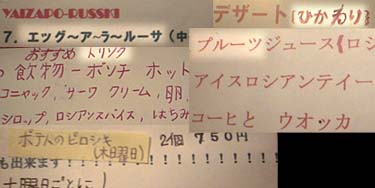 YAIZAPO-RUSSKI
7. エッグ〜ア-ラ-ルーサ (中
おすすめ ドリンク
飲物-ボンチ ホット
コニャック, サーワ クリーム, 卵,
シロップ, ロシアンスパイス, はちみ
ポテトのピロシキ 2個 750円
(木曜日)
も出来ます!!!!!!!!!!!!!!!
土曜日ごとに)
デザート(ひかわり)
プルーツジュース(ロシ
アイスロシアンテイー
コーヒと ウオッカ